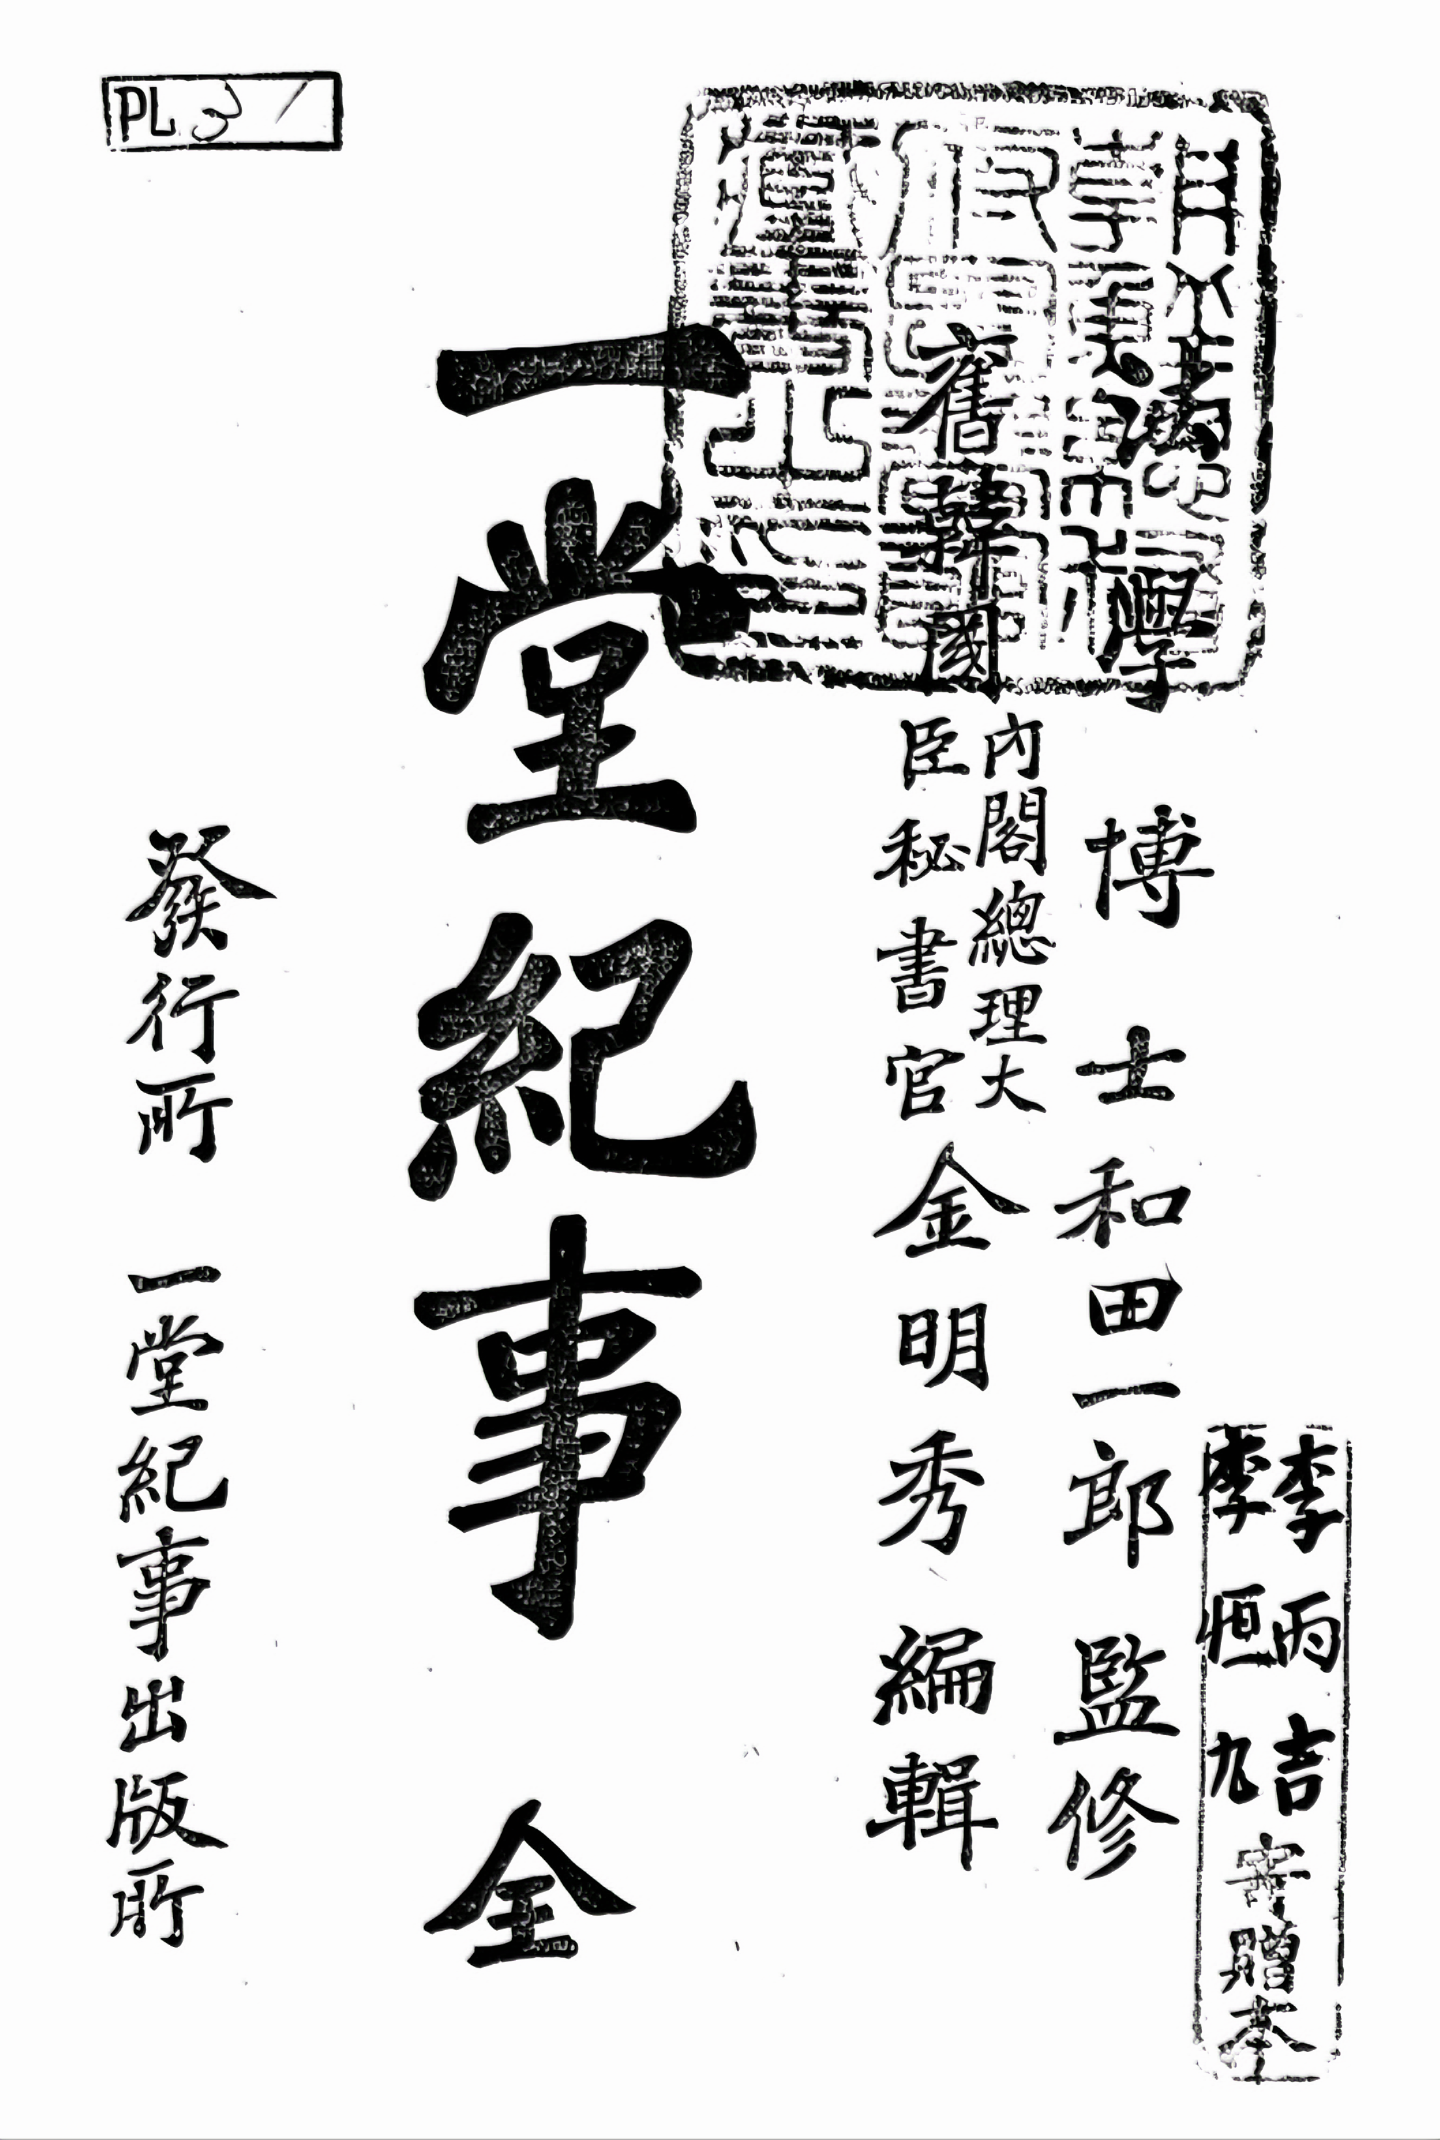 李丙吉
李恒九
寄贈本
法學博士和田一郎監修
舊韓國內閣總理大
臣秘書官金明秀編輯
一堂紀事 全
發行所 一堂紀事出版所
PL 3